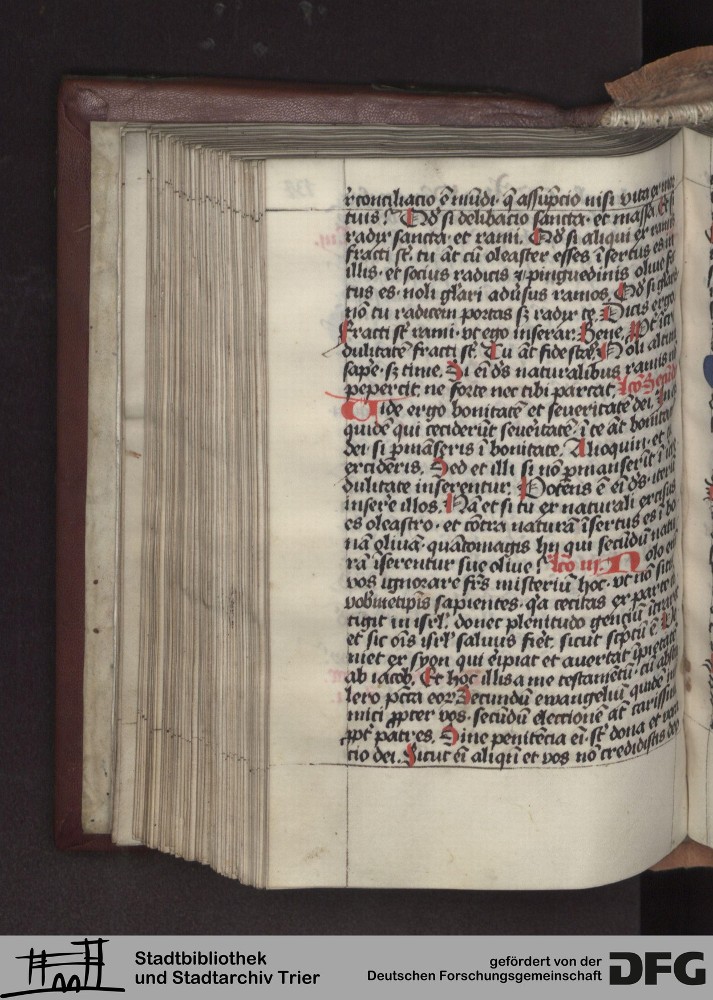 rconciliacio ē mūdi· q̄ assūpcio nisi vita ex mor
tuis? Qd̓ si delibacio sancta· et massa. Et si
radix sancta· et rami. Qd̓ si aliqui ex ramis
fracti st̄· tu āt cū oleaster esses īsertus es in
illis· et socius radicis ⁊ pinguedinis oliue fc̄
tus es· noli gl̄ari adūsus ramos. Qd̓ si gl̄ar̄
nō tu radicem portas sꝫ radix te. Dicis ergo
Fracti st̄ rami· vt ego inserar. Bene. Ppt̄ īcre
dulitatē fracti st̄. Tu āt fide stas. Noli altum
sape̓· sꝫ time. Si ei̅ dꝰs naturalibus ramis nō
pepercit· ne forte nec tibi parcat. lcō Secūda
Vide ergo bonitatē et seueritatē dei. In eos
quidē qui ceciderūt seueritatē· ī te āt bonitatē
dei· si ꝑmāseris ī bonitate. Alioquin· et tu
excideris. Sed et illi si nō ꝑmanserīt ī īcre
dulitate inserentur. Potens ē ei̅ dꝰs· iterū
inserē illos. Nā et si tu ex naturali excisus
es oleastro· et cōtra naturā īsertus es ī bo
nā oliuā· quātomagis hii qui secūdū natu
rā īserentur sue oliue? lcō iii. Nolo eni
vos ignorare frs̄ misteriū hoc· vt nō sitis
vobismetipīs sapientes· q̓a cecitas ex parte cō
tigit in isrl̄· donec plenitudo genciū ītraret
et sic oīs isrl̄ saluus fiet· sicut scptū ē. Ve
niet ex syon qui eripiat et auertat īpietatē
ab iacob. Et hoc illis a me testamētū· cū abstu
lero pctā eoꝝ Secundū ewangeliū quidē ini
mici ꝓpter vos· secūdū electionē āt carissimi
ꝓpt̄ patres. Sine penitēcia ei̅· st̄ dona et voca
cio dei. Sicut ei̅ aliqn̄ et vos nō credidistis deo
Stadtbibliothek
und Stadtarchiv Trier
gefördert von der
Deutschen Forschungsgemeinschaft
DFG